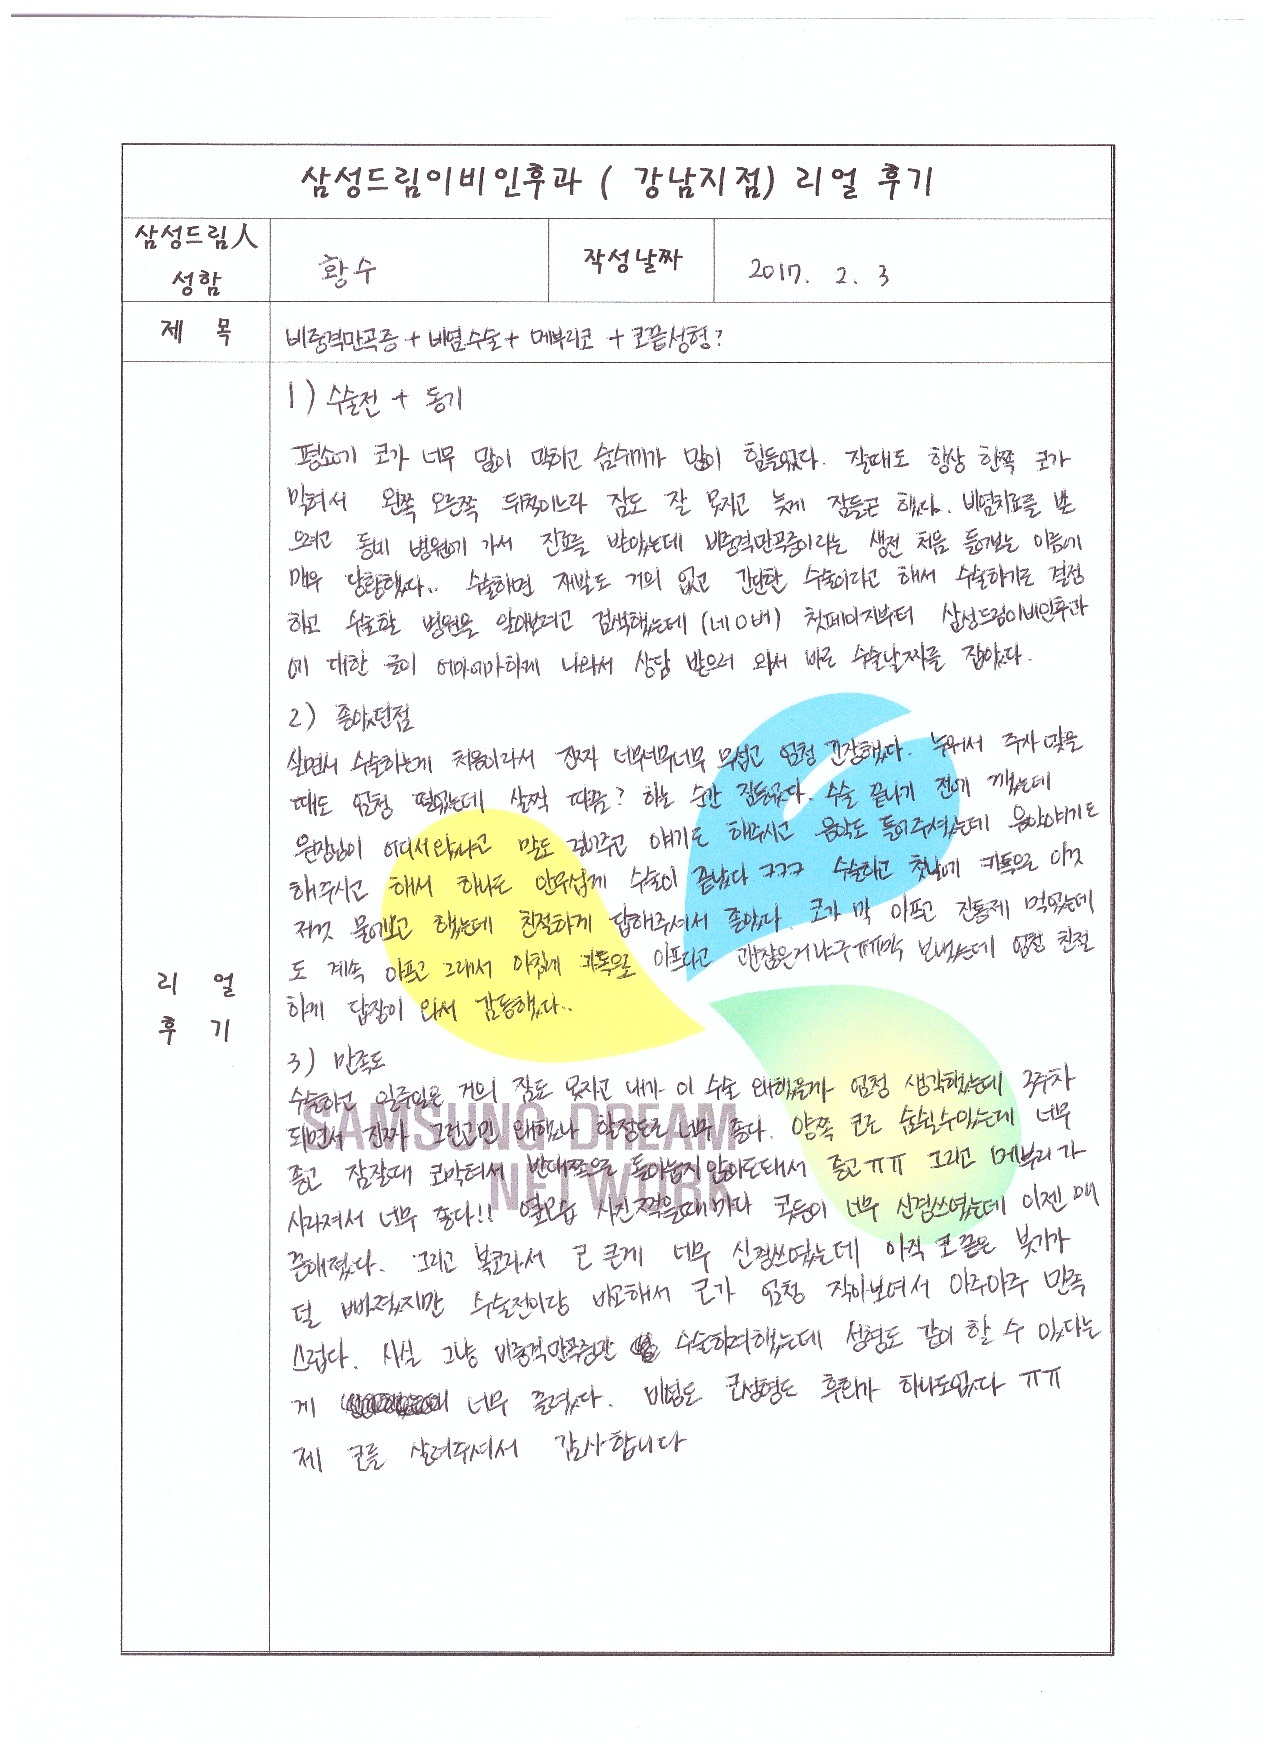 삼성드림이비인후과 ( 강남지점) 리얼 후기
삼성드림人
성함
황수
작성날짜
2017. 2. 3
제 목
비중격만곡증 + 비염수술 + 메부리코 + 코끝성형?
리 얼
후 기
1) 수술전 + 동기
평소에 코가 너무 많이 막히고 숨쉬기가 많이 힘들었다. 잘때도 항상 한쪽 코가
막혀서 왼쪽 오른쪽 뒤척이느라 잠도 잘 못자고 늦게 잠들곤 했다. 비염치료를 받
으려고 동네 병원에 가서 진료를 받았는데 비중격만곡증이라는 생전 처음 들어보는 이름에
매우 당황했다.. 수술하면 재발도 거의 없고 간단한 수술이라고 해서 수술하기로 결정
하고 수술할 병원을 알아보려고 검색했는데 (네O버) 첫페이지부터 삼성드림이비인후과
에 대한 글이 어마어마하게 나와서 상담 받으러 와서 바로 수술날짜를 잡았다.
2) 좋았던점
살면서 수술하는게 처음이라서 진짜 너무너무너무 무섭고 엄청 긴장했다. 누워서 주사 맞을
때도 엄청 떨었는데 살짝 따끔? 하는 순간 잠들었다. 수술 끝나기 전에 깼는데
원장님이 어디서왔냐고 말도 걸어주고 얘기도 해주시고 음악도 틀어주셨는데 음악얘기도
해주시고 해서 하나도 안무섭게 수술이 끝났다 ㅋㅋㅋ 수술하고 첫날에 카톡으로 이것
저것 물어보고 했는데 친절하게 답해주셔서 좋았다. 코가 막 아프고 진통제 먹었는데
도 계속 아프고 그래서 아침에 카톡으로 아프다고 괜찮은거냐구 ㅠㅠ막 보냈는데 엄청 친절
하게 답장이 와서 감동했다..
3) 만족도
수술하고 일주일은 거의 잠도 못자고 내가 이 수술 왜했을까 엄청 생각했는데 2주차
되면서 진짜 그런고민 왜했나 할정도로 너무 좋다. 양쪽 코로 숨쉴수있는게 너무
좋고 잠잘때 코막혀서 반대쪽으로 돌아눕지 않아도돼서 좋고 ㅠㅠ 그리고 메부리가
사라져서 너무 좋다!! 옆모습 사진찍을때마다 콧등이 너무 신경쓰였는데 이젠 매
끈해졌다. 그리고 복코라서 코 큰게 너무 신경쓰였는데 아직 코끝은 붓기가
덜 빠졌지만 수술전이랑 비교해서 코가 엄청 작아보여서 아주아주 만족
스럽다. 사실 그냥 비중격만곡증만 수술하려했는데 성형도 같이 할 수 있다는
게 너무 끌렸다. 비염도 코성형도 후회가 하나도없다 ㅠㅠ
제 코를 살려주셔서 감사합니다
SAMSUNG DREAM
NETWORK